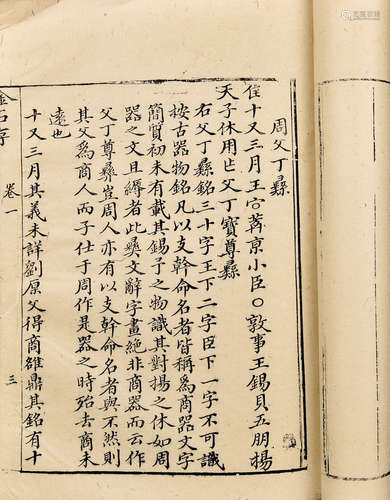 周父丁彝
隹十又三月王宫葊京小臣〇敦事王錫貝五朋揚
天子休用乍父丁寶尊彝
右父丁彝銘三十字王下二字臣下一字不可識
按古器物銘凡以支幹命名者皆稱為商器文字
簡質初未有載其錫予之物識其對揚之休如周
器之文且縟者此彝文辭字畫絶非商器而云作
父丁尊彝豈周人亦有以支幹命名者與不然則
其父為商人而子仕于周作是器之時殆去商未
遠也
十又三月其義未詳劉原父得商雒鼎其銘有十
金石存
卷一
三